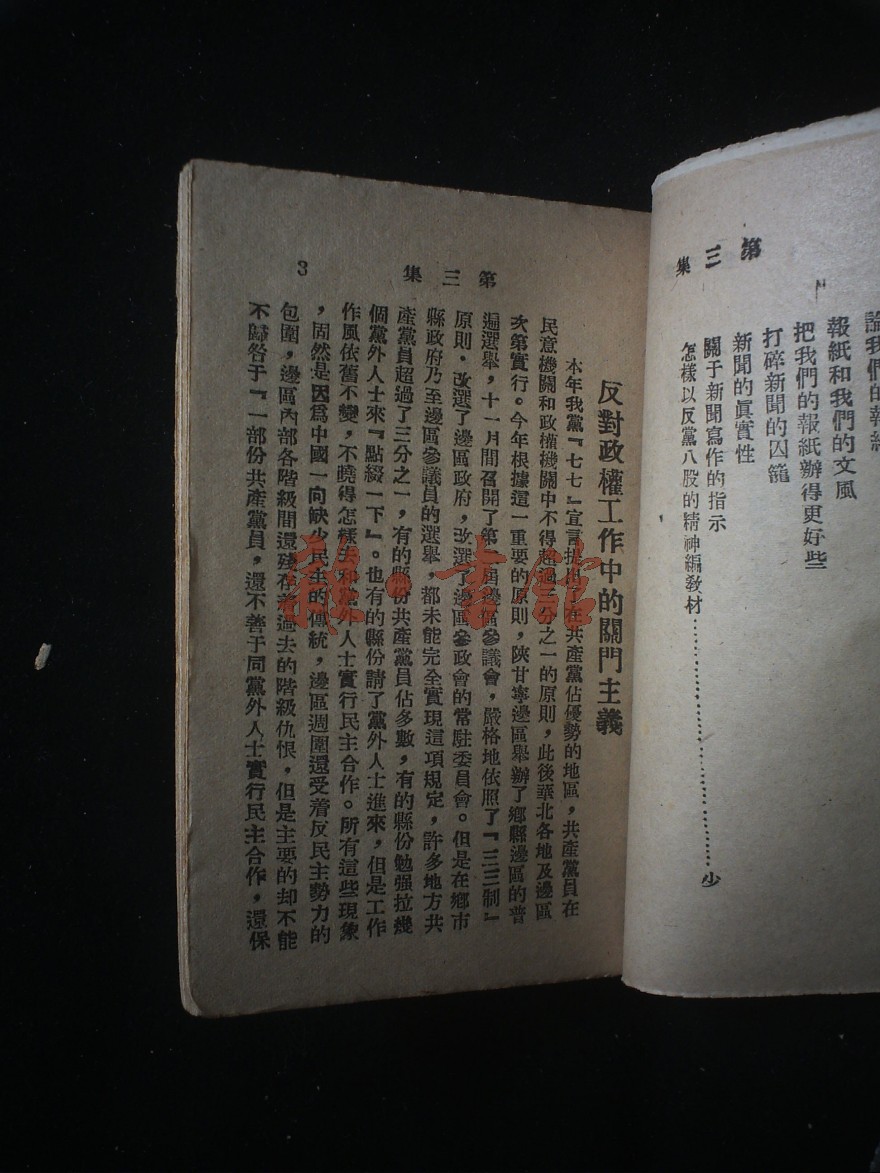 第三集
報紙和我們的文風
把我們的報紙辦得更好些
打碎新聞的囚籠
新聞的眞實性
關于新聞寫作的指示
怎樣以反黨八股的精神編敎材……………………少
第三集
3
反對政權工作中的關門主義
本年我黨『七七』宣言提出，在共產黨佔優勢的地區，共產黨員在
民意機關和政權機關中不得超過三分之一的原則，此後華北各地及邊區
次第實行。今年根據這一重要的原則，陝甘寧邊區舉辦了鄉縣邊區的普
遍選舉，十一月間召開了第二屆邊區參議會，嚴格地依照了『三三制』
原則，改選了邊區政府，改選了邊區參政會的常駐委員會。但是在鄉市
縣政府乃至邊區參議員的選舉，都未能完全實現這項規定，許多地方共
產黨員超過了三分之一，有的縣份共產黨員佔多數，有的縣份勉强拉幾
個黨外人士來『點綴一下』。也有的縣份請了黨外人士進來，但是工作
作風依舊不變，不曉得怎樣去和黨外人士實行民主合作。所有這些現象
，固然是因爲中國一向缺少民主的傳統，邊區週圍還受着反民主勢力的
包圍，邊區內部各階級間還殘存着過去的階級仇恨，但是主要的却不能
不歸咎于『一部份共產黨員，還不善于同黨外人士實行民主合作，還保
雜·書館